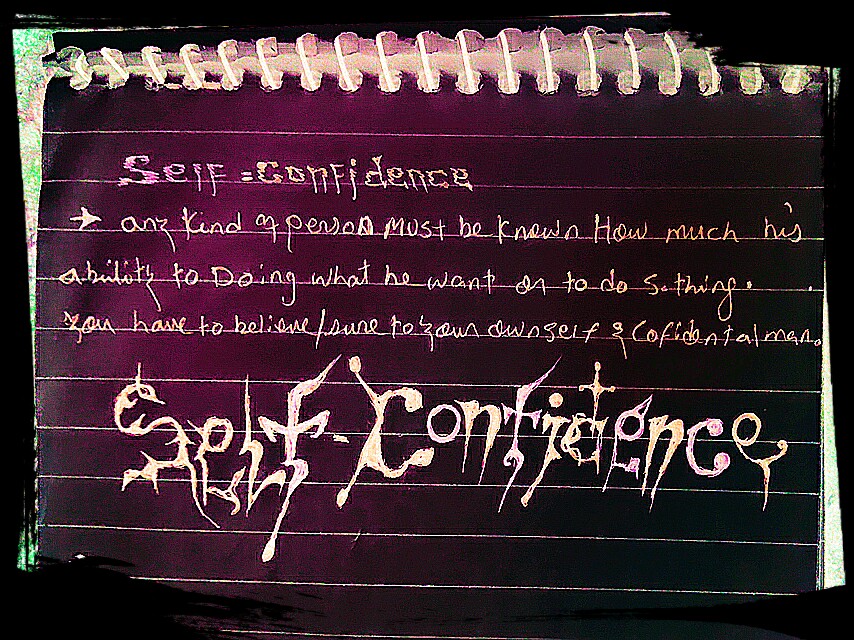 Self = Confidence
→ any kind of person must be known How much his
ability to Doing what he want or to do s.thing.
you have to believe/sure to your ownself & Cofidental man.
Self-Confidence